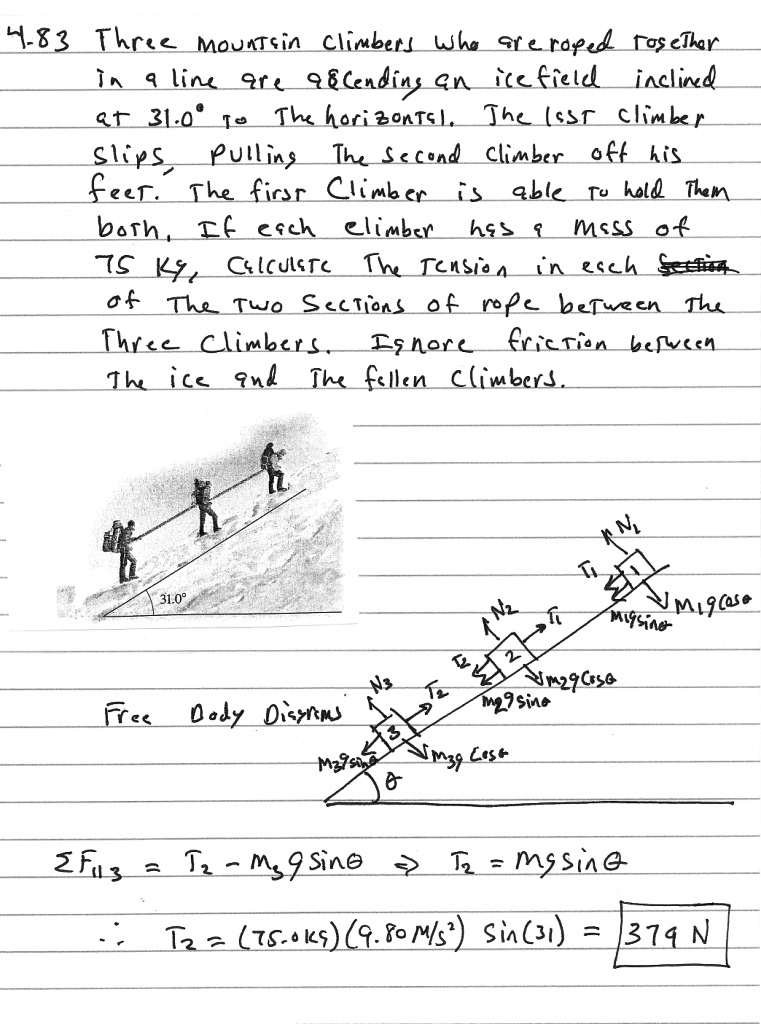 4-83 Three mountain climbers who are roped together
in a line are ascending an icefield inclined
at 31.0° to the horizontal. The last climber
slips, pulling the second climber off his
feet. The first climber is able to hold them
both. If each climber has a mass of
75 kg, calculate the tension in each section
of the two sections of rope between the
three climbers. Ignore friction between
the ice and the fallen climbers.
31.0°
N1
T1
1
m1g sinθ
m1g cosθ
N2
T1
T2
2
m2g cosθ
m2g sinθ
Free Body Diagrams
N3
T2
3
m3g sinθ
m3g cosθ
θ
ΣF||3 = T2 - m3g sinθ ⇒ T2 = mg sinθ
∴ T2 = (75.0kg)(9.80 m/s²) sin(31) = 379 N